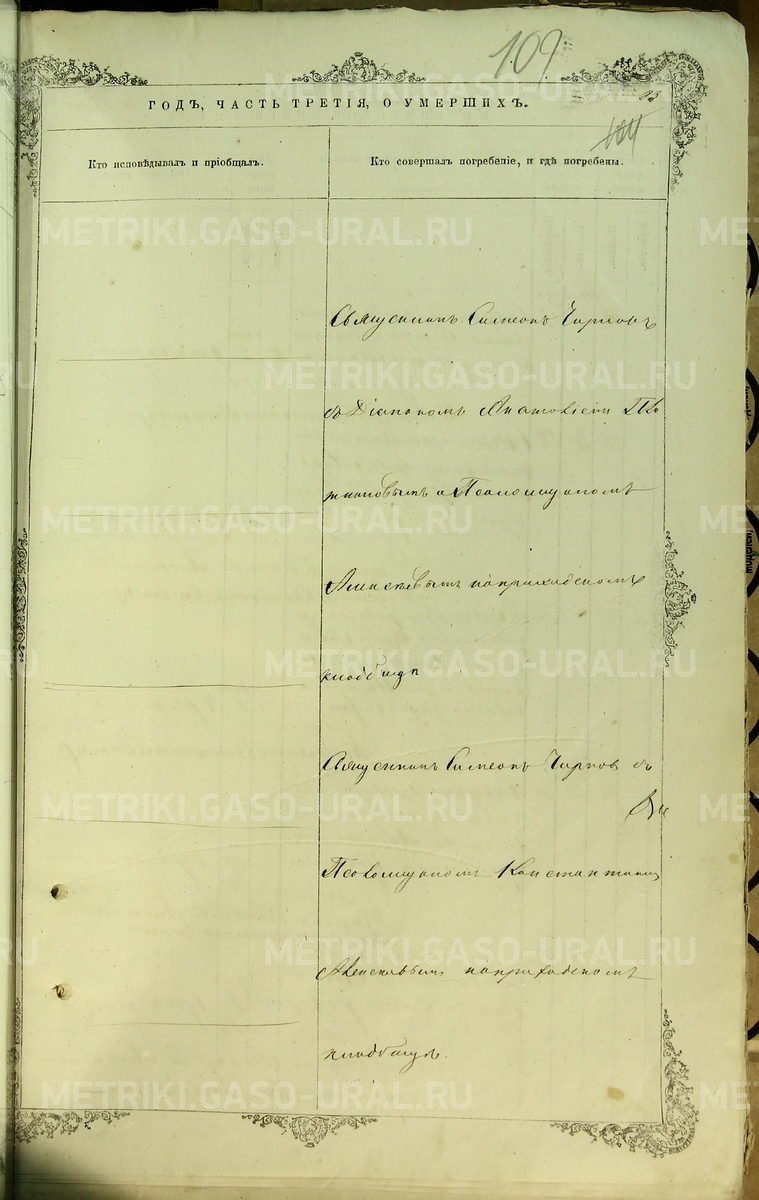 109
83
104
ГОДЪ, ЧАСТЬ ТРЕТІЯ, О УМЕРШИХЪ.
Кто исповѣдывалъ и пріобщалъ.
Кто совершалъ погребеніе, и гдѣ погребены.
METRIKI.GASO-URAL.RU
Священникъ Симеонъ Чирковъ
съ Діакономъ
и Псаломщикомъ
на приходскомъ
кладбищѣ
Священникъ Симеонъ Чирковъ съ
Псаломщикомъ Константиномъ
на приходскомъ
кладбищѣ.